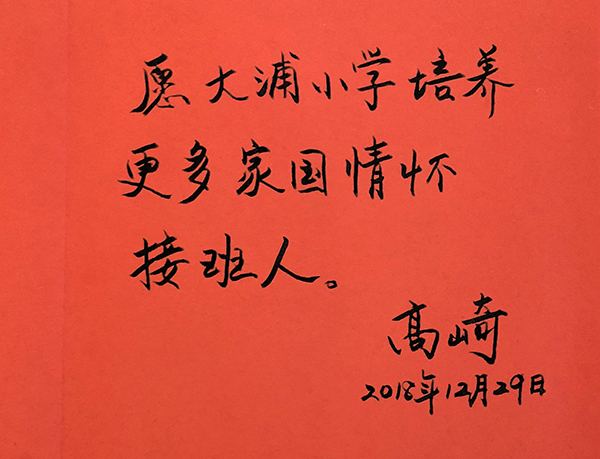 愿大浦小学培养
更多家国情怀
接班人。
高崎
2018年12月29日